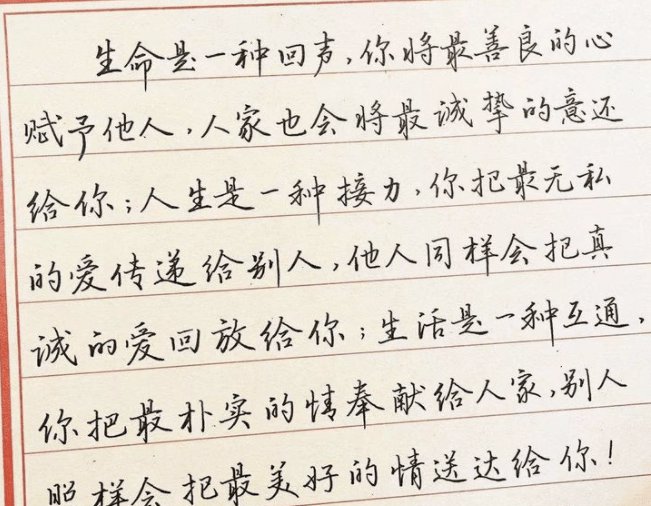 生命是一种回声,你将最善良的心
赋予他人,人家也会将最诚挚的意还
给你;人生是一种接力,你把最无私
的爱传递给别人,他人同样会把真
诚的爱回放给你;生活是一种互通,
你把最朴实的情奉献给人家,别人
照样会把最美好的情送达给你!